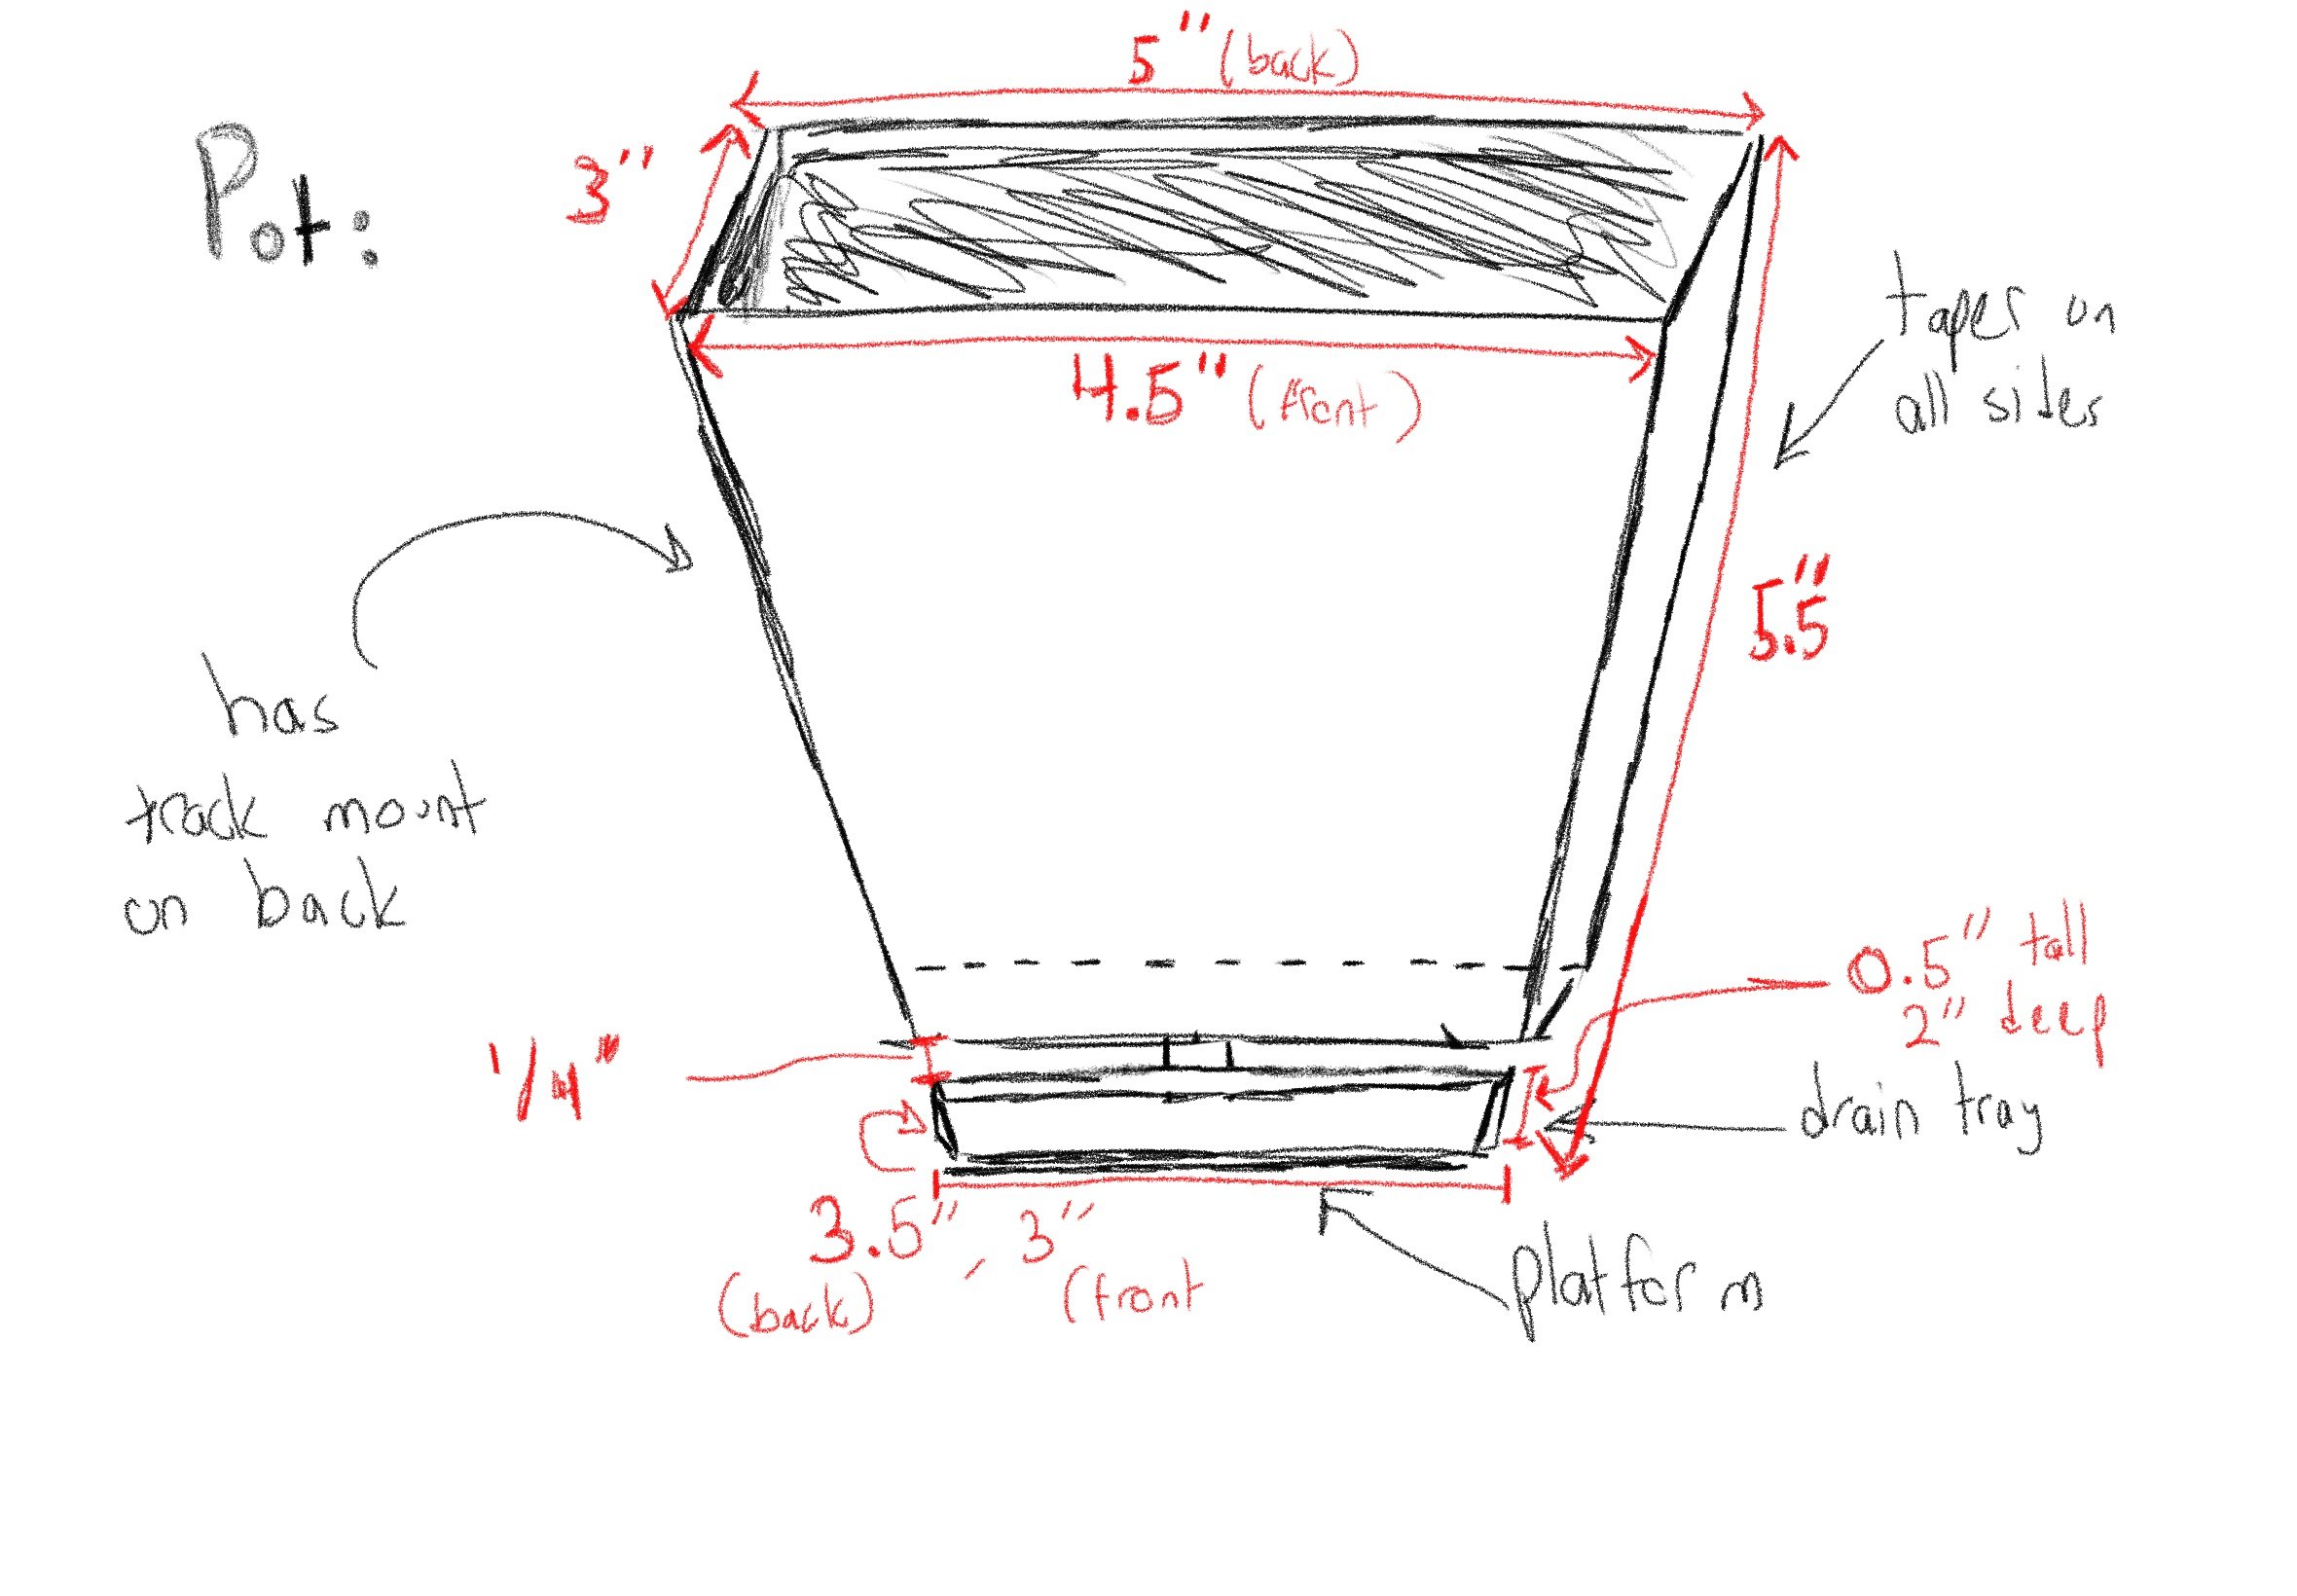 5" (back)
Pot:
3"
4.5" (front)
tapes on
all sides
5.5"
has
track mount
on back
0.5" tall
2" deep
1/4"
drain tray
3.5", 3"
(back) (front
platform